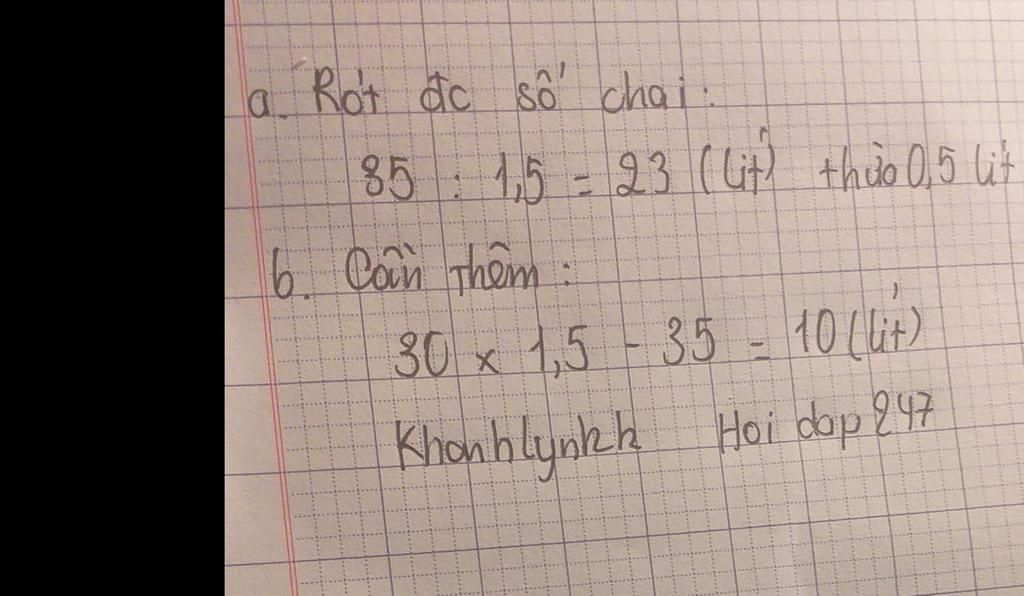 a. Rót đc số chai:
35 : 1,5 = 23 (lít) thừa 0,5 lít
b. Cần thêm:
30 x 1,5 - 35 = 10 (lít)
Khanhlynhh Hoi dap 247